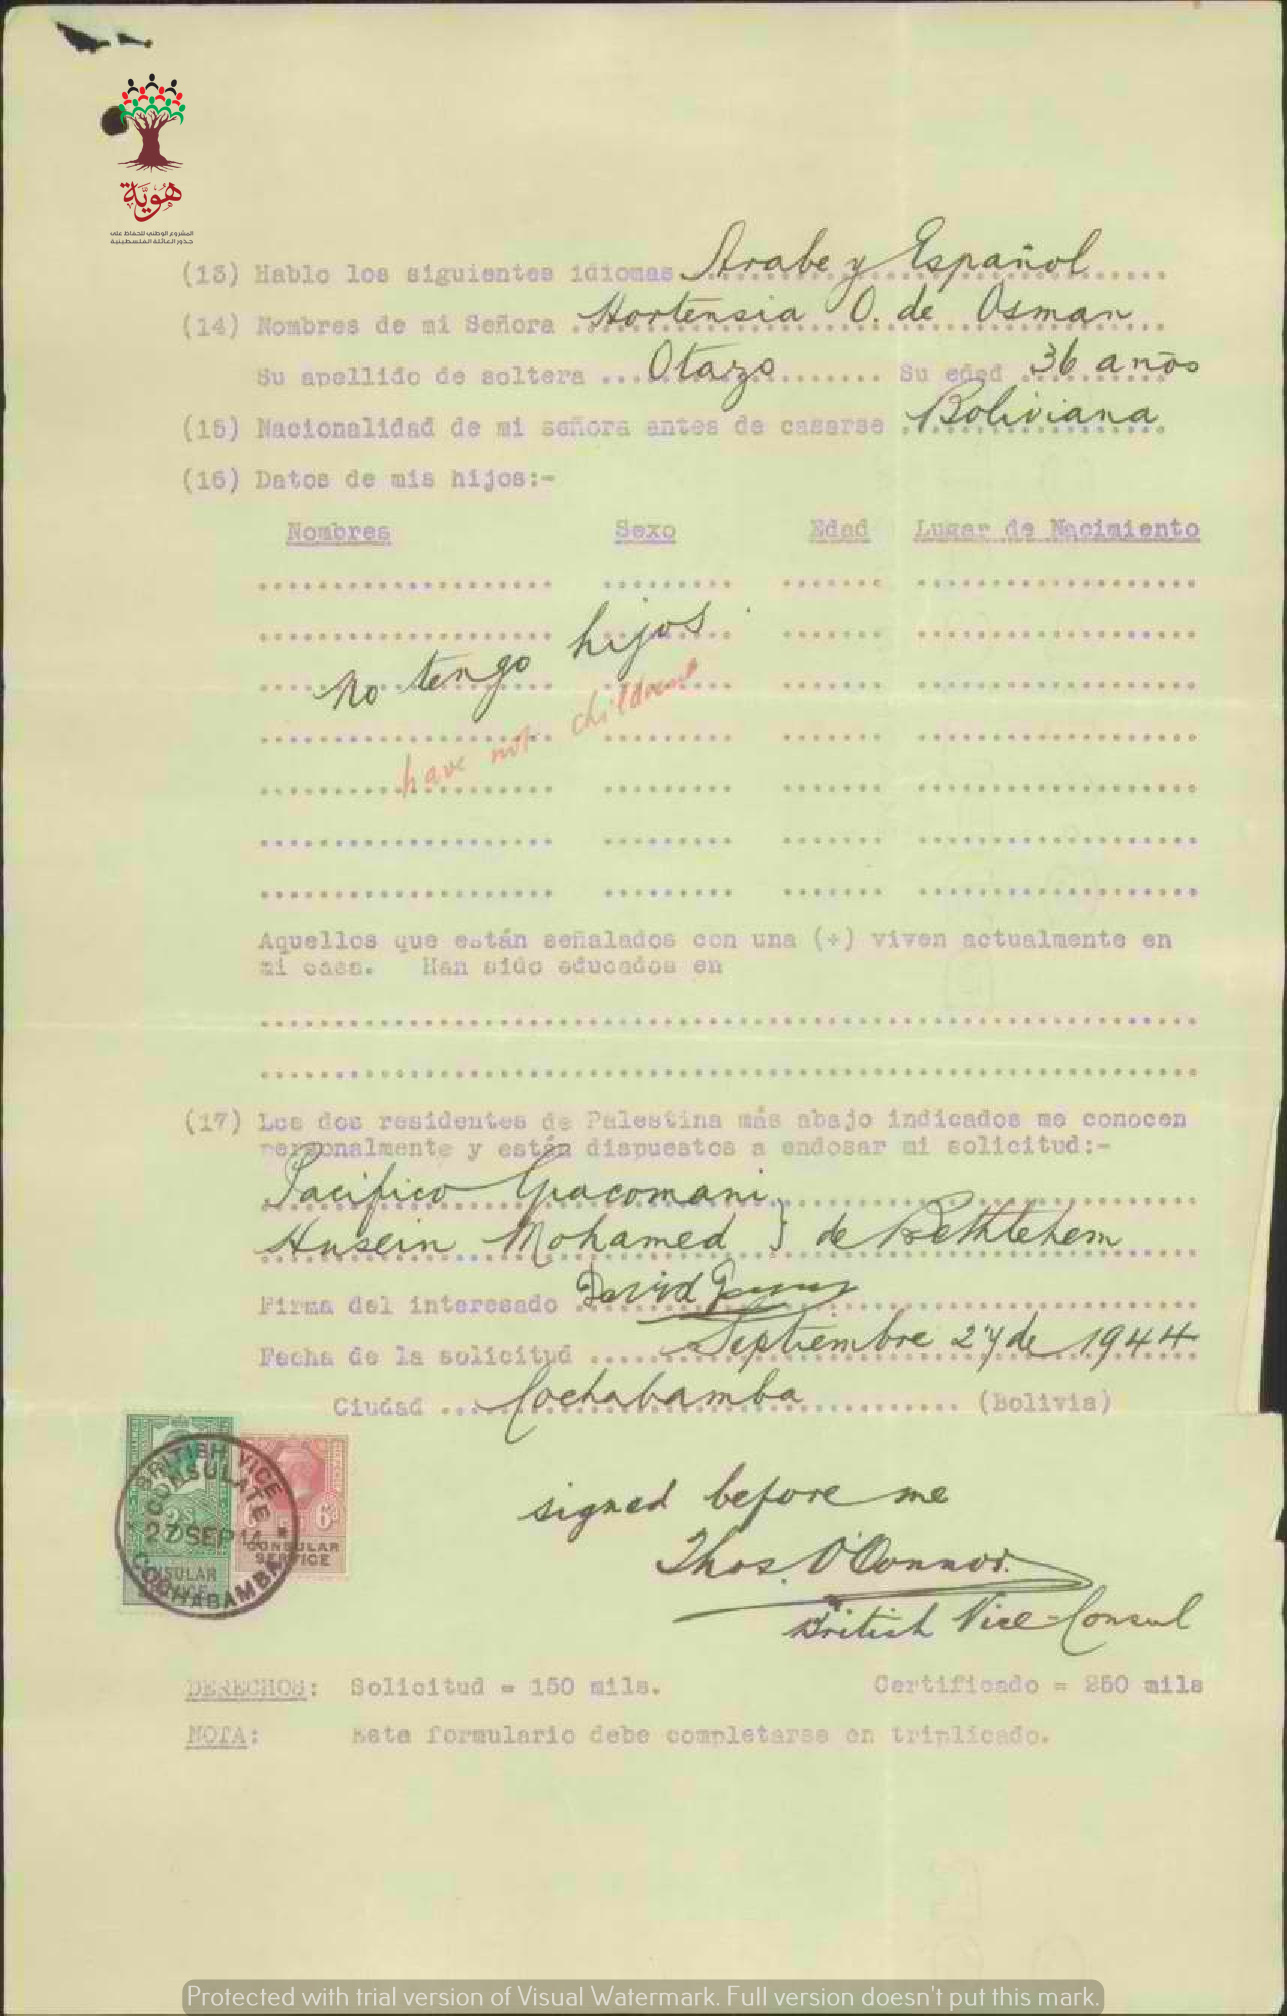 هوية
المشروع الوطني للحفاظ على
جذور العائلة الفلسطينية
(13) Hablo los siguientes idiomas Arabe y Español
(14) Nombres de mi Señora Hortensia O. de Osman
Su apellido de soltera Otazo Su edad 36 años
(15) Nacionalidad de mi señora antes de casarse Boliviana
(16) Datos de mis hijos:-
Nombres Sexo Edad Lugar de Nacimiento
no tengo hijos
have not children
Aquellos que están señalados con una (+) viven actualmente en
mi casa. Han sido educados en
(17) Los dos residentes de Palestina más abajo indicados me conocen
personalmente y están dispuestos a endosar mi solicitud:-
Pacifico Giacomani
Husein Mohamed } de Bethlehem
Firma del interesado David
Fecha de la solicitud Septiembre 27 de 1944
Ciudad Cochabamba (Bolivia)
BRITISH VICE CONSULATE
27 SEP 44
COCHABAMBA
2s
CONSULAR SERVICE
6d
CONSULAR SERVICE
signed before me
Thos. O'Connor
British Vice-Consul
DERECHOS: Solicitud = 150 mils. Certificado = 250 mils
NOTA: Este formulario debe completarse en triplicado.
Protected with trial version of Visual Watermark. Full version doesn't put this mark.